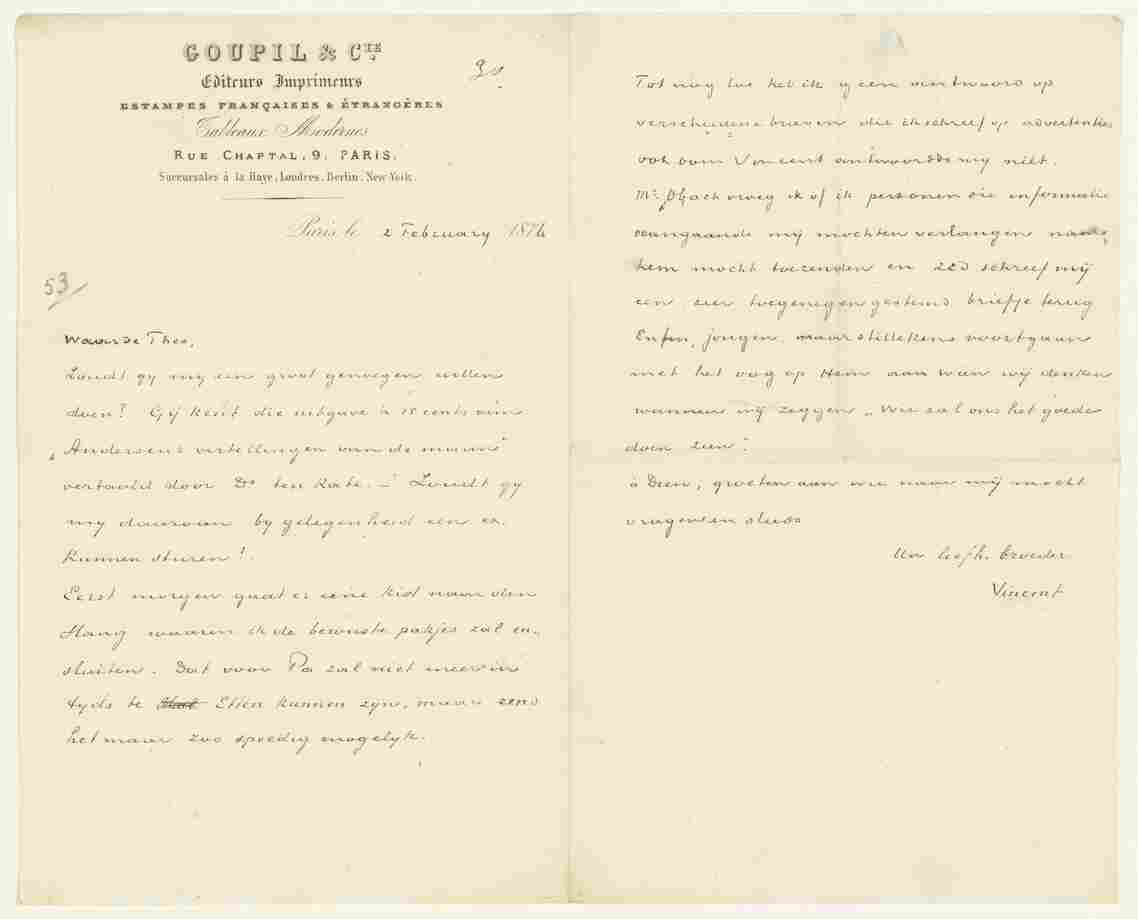 GOUPIL & CIE
Editeurs Imprimeurs
ESTAMPES FRANÇAISES & ÉTRANGÈRES
Tableaux Modernes
RUE CHAPTAL, 9, PARIS.
Succursales à la Haye, Londres, Berlin, New-York.
Paris, le 2 February 1876
53
Waarde Theo,
Zoudt gy my een groot genoegen willen
doen? Gij kent die uitgave à 15 cents van
„Andersens vertellingen van de maan"
vertaald door Ds ten Kate. – Zoudt gy
my daarvan by gelegenheid een ex.
kunnen sturen?.
Eerst morgen gaat er eene kist naar den
Haag waarin ik de bewuste pakjes zal in„
sluiten. Dat voor Pa zal niet meer in
tyds te Etten kunnen zyn, maar zend
het maar zoo spoedig mogelyk.
Tot nog toe heb ik geen antwoord op
verscheidene brieven die ik schreef op advertenties
ook oom Vincent antwoordde my niet.
Mr. Obach vroeg ik of ik personen die informatie
aangaande mij mochten verlangen naar
hem mocht toezenden en ZEd schreef mij
een zeer toegenegen gestemd briefje terug
Enfin, jongen, maar stillekens voortgaan
met het oog op Hem aan wien wij denken
wanneer wij zeggen „Wie zal ons het goede
doen zien?
à Dieu, groeten aan wie naar mij mocht
vragen en steeds
Uw liefh. broeder
Vincent